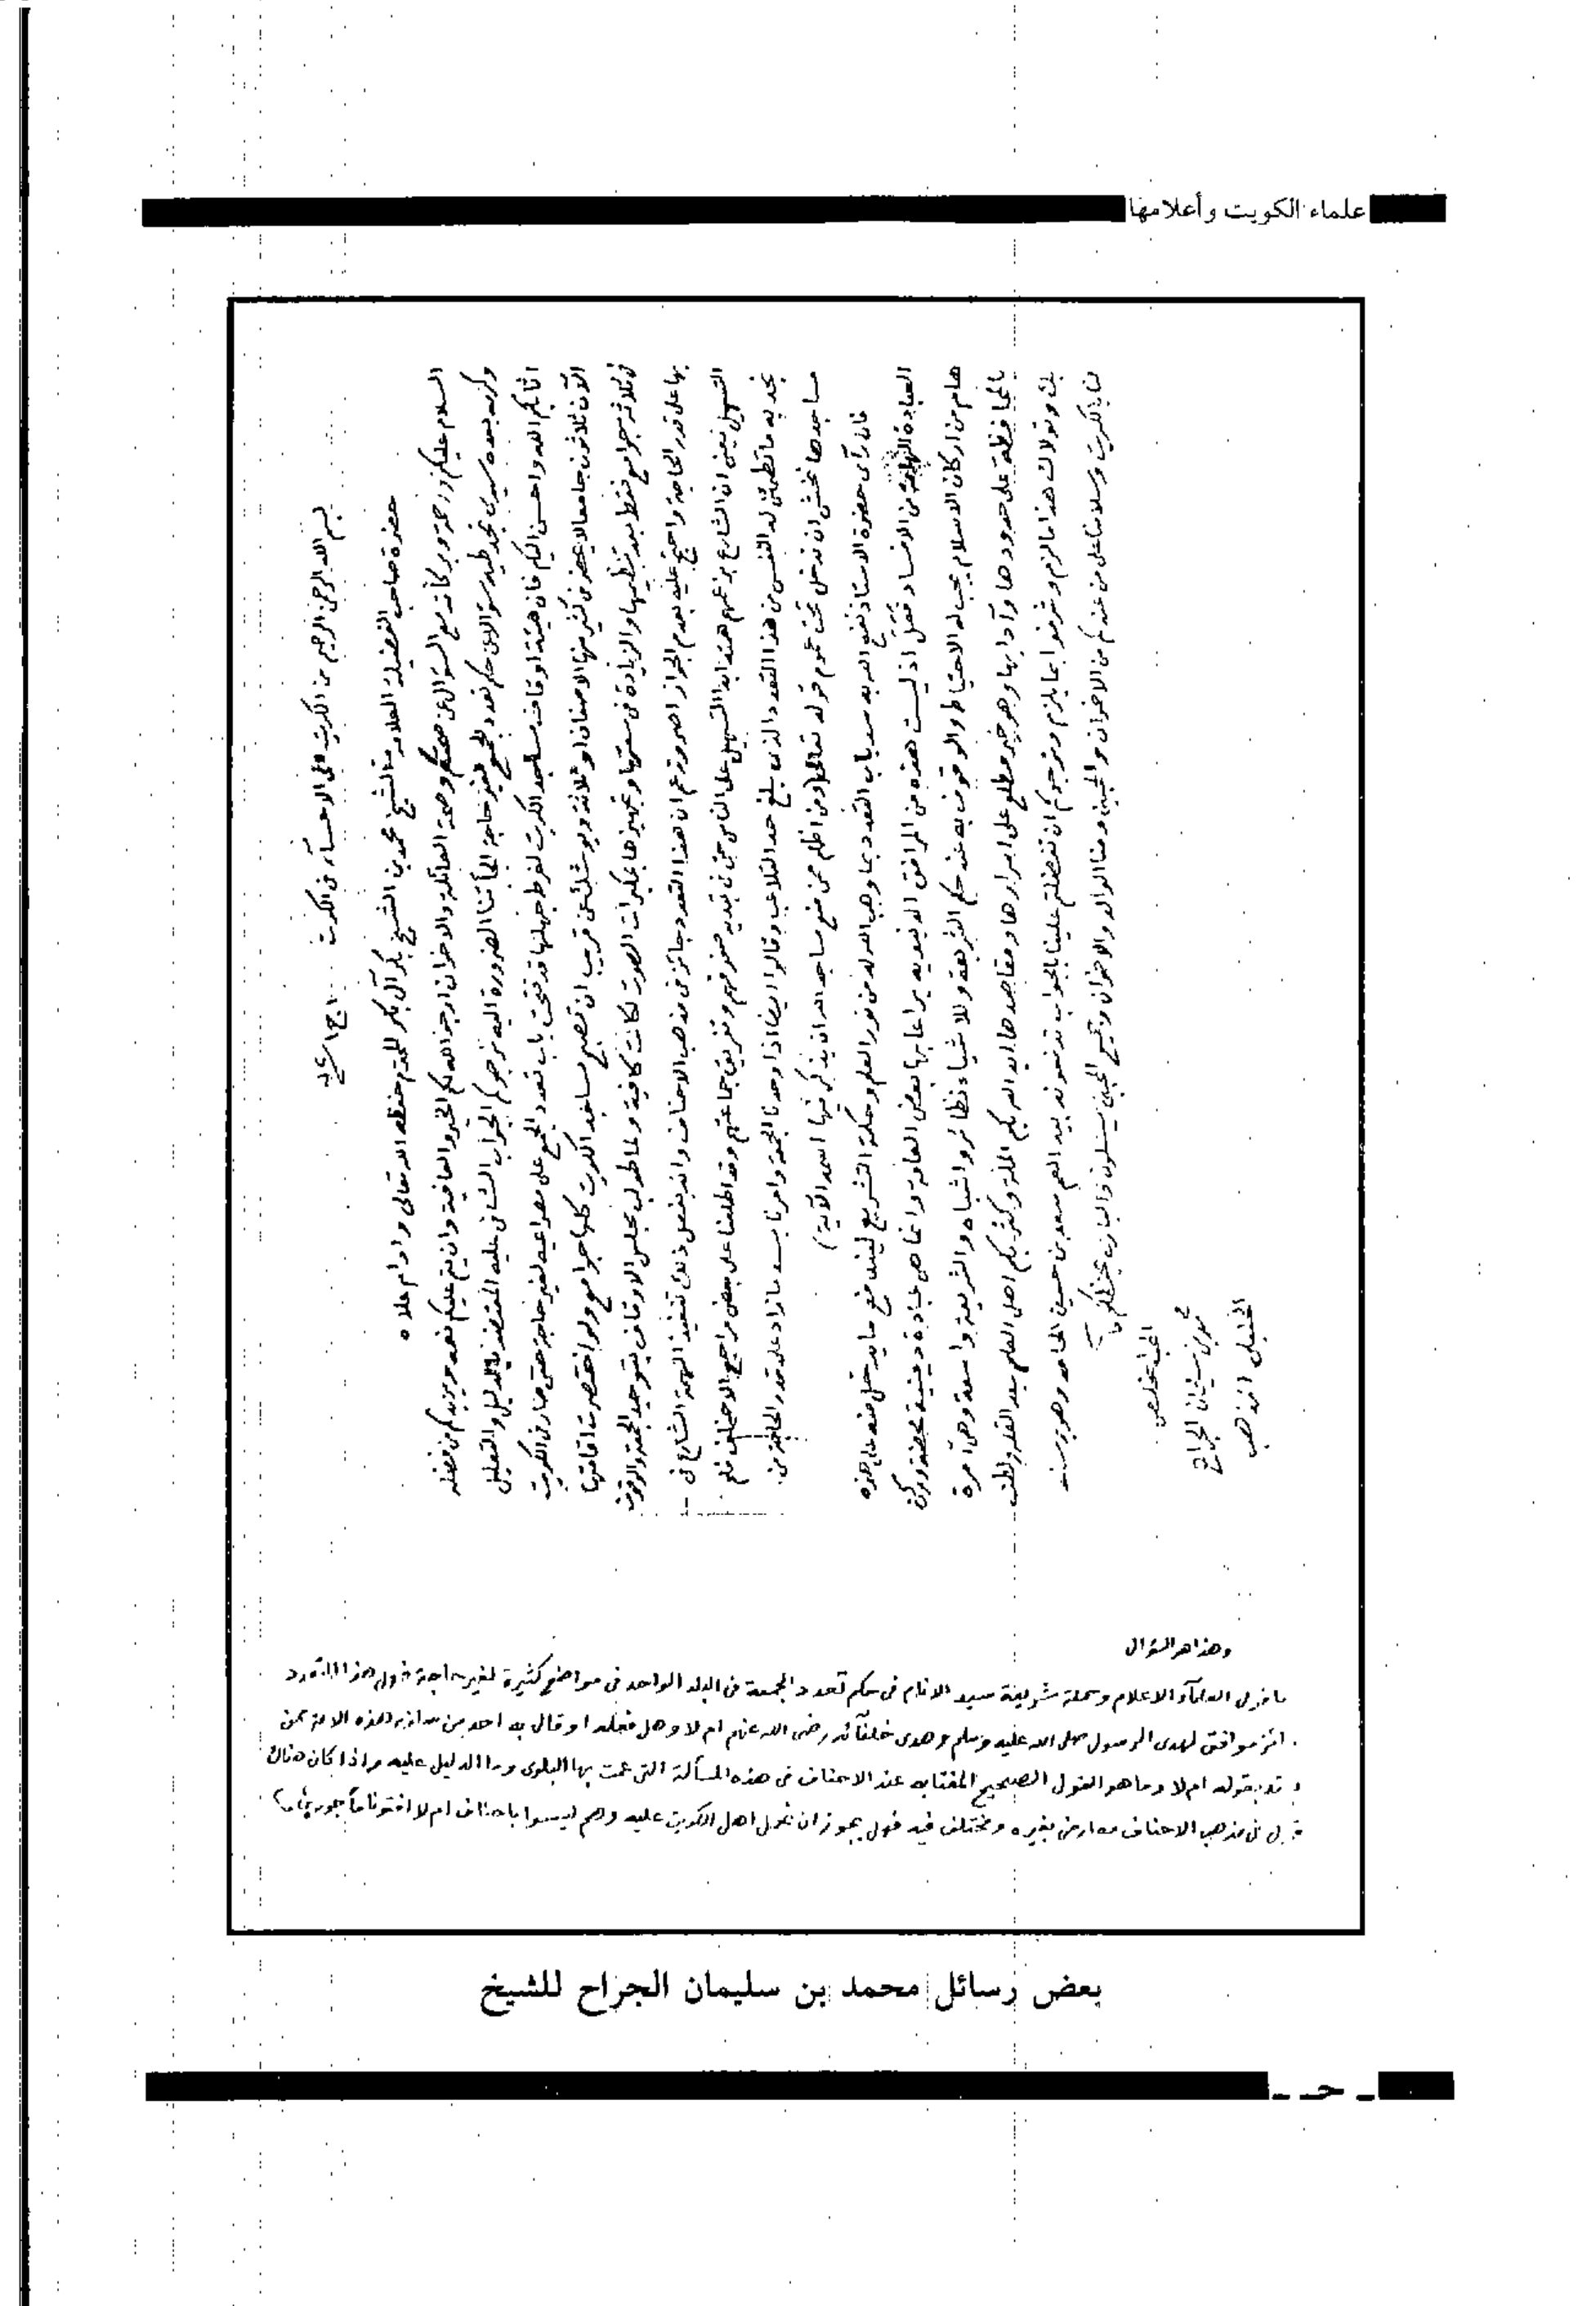 علماء الكويت وأعلامها
بسم الله الرحمن الرحيم من الكويت الى الاحساء في
حضرة صاحب الفضيلة العلامة الشيخ محمد بن الشيخ بكر آل بكر المحترم حفظه الله تعالى وادام علاه
السلام عليكم ورحمة وبركاته مع السؤال عن صحتكم وصحة العائلة والاخوان ارجو الله لكم الخير والعافية وان يتم عليكم نعمه ويزيدكم من فضله
وكرمه بعده سيدي تجد طيه سؤالا عن حكم تعدد الجمع لغير حاجة الجأتنا الضرورة اليه نرجوكم الجواب الشافي عليه المقتضد بالدليل والتعليل
اثابكم الله واحسن اليكم فان هيئة اوقاف مساجد الكويت لفرط جهلها قد فتحت باب تعدد الجمع على مصراعيه لغير حاجة حتى صار في الكويت
الآن ثلاثون جامعا لا يحضر في كثير منها الا صفان او ثلاثة ويوشك عن قريب ان تصبح مساجد الكويت كلها جوامع ولو اختصرت اقامتها
في ثلاثة جوامع فقط بعد تنظيمها والزيادة في سعتها وتجهيزها بمكبرات الصوت لكانت كافية ولما طولب مجلس الاوقاف بتوحيد الجمعة والوقوف
بها على قدر الحاجة واحتج عليه بعدم الجواز اصر وزعم ان هذا التعدد جائز في مذهب الاحناف وانه بفعل ذلك تنفيذ الشارع في
التسهيل يعني ان الشارع بزعمهم همته ابدا التسهيل على الناس حتى في تبديد صفوفهم وتفريق جماعتهم وقد اطلعنا على بعض مراجع الاحناف فلم
نجد به ما تطمئن له النفس من هذا التعدد الذي بلغ حد التلاعب وقالوا ايضا اذا وحدنا الجمعة وامرنا بسد ما زاد على قدر الحاجة من
مساجدها نخشى ان ندخل تحت عموم قوله تعالى (ومن اظلم ممن منع مساجد الله ان يذكر فيها اسمه الآية)
فان رأى حضرة الاستاذ نفع الله به سد باب التعدد بما وهب الله له من نور العلم وحكمة التشريع ليندفع ما يدخل منه على هذه
العبادة من الافساد فعل اذ ليست هذه من المرافق الدنيوية يراعا بها بعض العامة وانما هي عبادة دينية محضة وركن
هام من اركان الاسلام يجب له الاحتياط والوقوف به عند حكم الشريعة وللاشياء نظائر واشباه والشريعة واسعة وهي آمرة
بالمحافظة على حدودها وآدابها وهو خير مطلع على اسرارها ومقاصدها ايد الله بكم الملة وكثر بكم اهل العلم بعد القلة ولطف
بك وتولاك هذا ما لزم وشرفوا بما يلزم ونرجوكم ان تفضلتم علينا بالجواب تدفعونه بيد العم سعد بن حسين الحامد وهو يرسله
لنا بالكويت وسلامنا على من عندكم من الاخوان والمحبين ومنا الوالد والاخوان وجميع المحبين يسلمون والباري يحفظكم
المحب المخلص
محمد بن سليمان الجراح
الحنبلي المذهب
وهذا هو السؤال
ما قول العلماء الاعلام وحملة شريعة سيد الانام في حكم تعدد الجمعة في البلد الواحد في مواضع كثيرة لغير حاجة فهل هذا التعدد
موافق لهدى الرسول صلى الله عليه وسلم وهدى خلفائه رضي الله عنهم ام لا وهل فعله او قال به احد من هذه الامة ممن
يقتد بقوله ام لا وما هو القول الصحيح المفتا به عند الاحناف في هذه المسألة التي عمت بها البلوى وما الدليل عليه واذا كان هناك
قول في مذهب الاحناف معارض بغيره ومختلف فيه فهل يجوز ان نحمل اهل الكويت عليه وهم ليسوا باحناف ام لا افتونا مأجورين
بعض رسائل محمد بن سليمان الجراح للشيخ
ـ حـ ـ